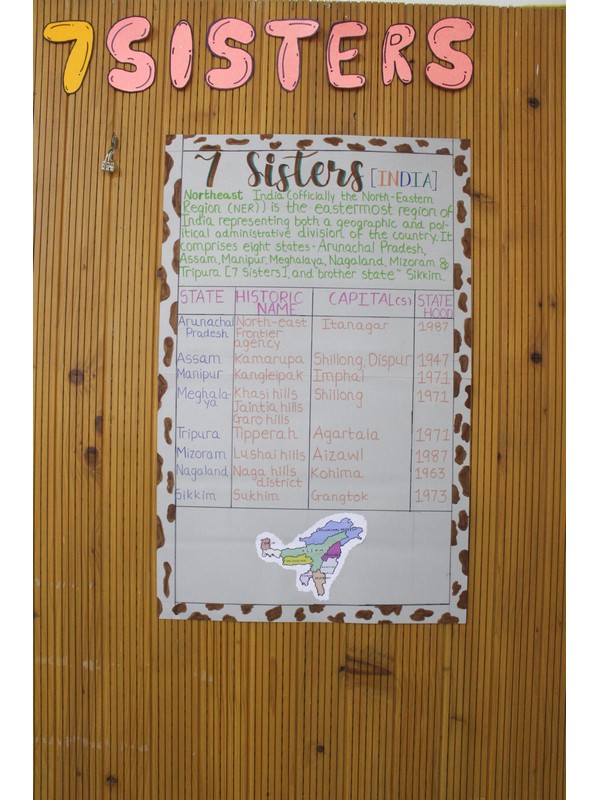 7 SISTERS
7 Sisters [INDIA]
Northeast India (officially the North-Eastern
Region (NER)) is the easternmost region of
India representing both a geographic and pol-
itical administrative division of the country. It
comprises eight states - Arunachal Pradesh,
Assam, Manipur, Meghalaya, Nagaland, Mizoram &
Tripura [7 Sisters], and brother state ~ Sikkim.
STATE HISTORIC NAME CAPITAL(s) STATE HOOD
Arunachal Pradesh North-east Frontier agency Itanagar 1987
Assam Kamarupa Shillong, Dispur 1947
Manipur Kangleipak Imphal 1971
Meghala-ya Khasi hills Jaintia hills Garo hills Shillong 1971
Tripura Tipperah Agartala 1971
Mizoram Lushai hills Aizawl 1987
Nagaland Naga hills district Kohima 1963
Sikkim Sukhim Gangtok 1973